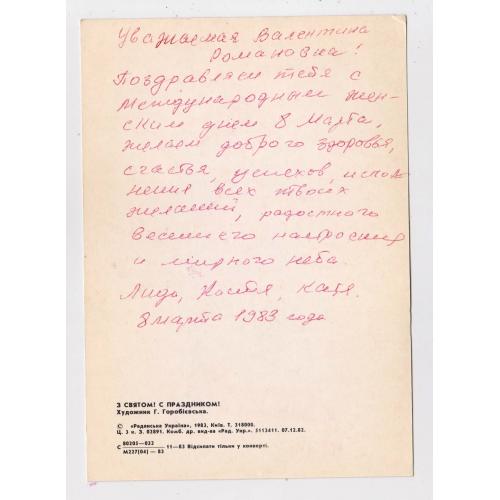 Уважаемая Валентина
Романовна!
Поздравляем тебя с
Международным жен-
ским днем 8 Марта,
желаем доброго здоровья,
счастья, успехов, испол-
нения всех твоих
желаний, радостного
весеннего настроения
и мирного неба.
Лида, Костя, Катя.
8 марта 1983 года
З СВЯТОМ! С ПРАЗДНИКОМ!
Художник Г. Горобієвська.
© «Радянська Україна», 1983, Київ. Т. 318000.
Ц. 3 к. З. 02891. Комб. др. вид-ва «Рад. Укр.». 5113411. 07.12.82.
С 80205—032
М227(04) — 83 11—83 Відсилати тільки у конверті.